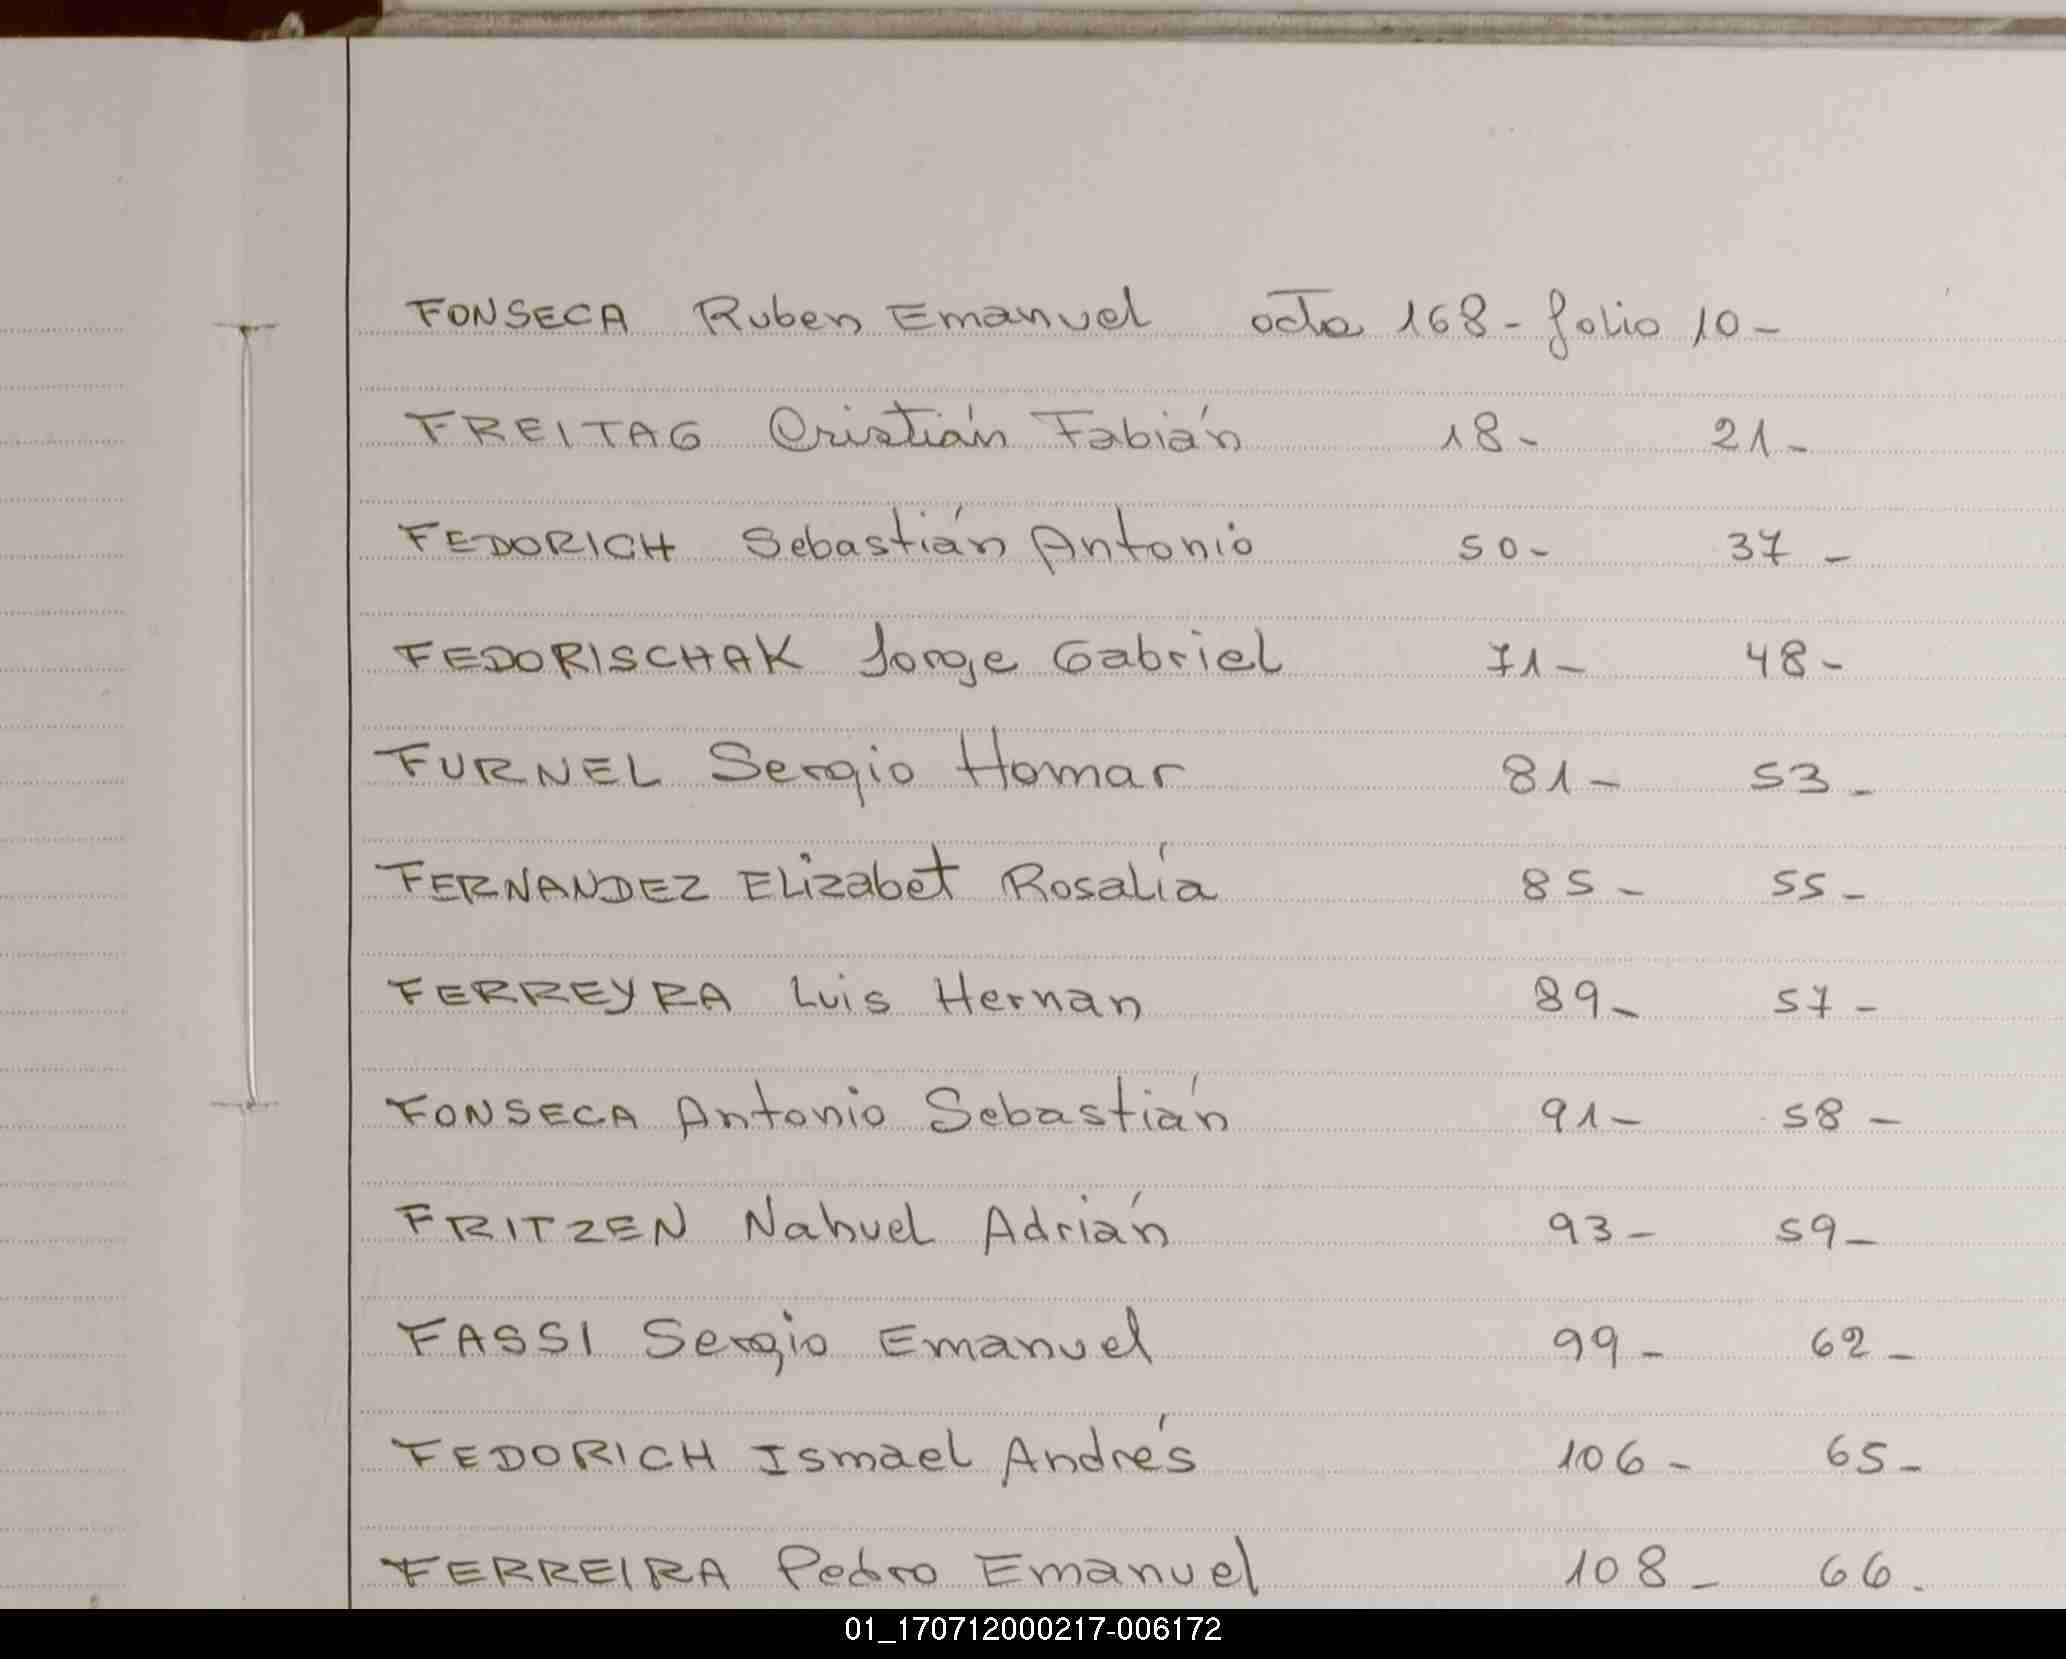 FONSECA Ruben Emanuel acta 168- folio 10-
FREITAG Cristián Fabián 18- 21-
FEDORICH Sebastián Antonio 50- 37-
FEDORISCHAK Jorge Gabriel 71- 48-
FURNEL Sergio Homar 81- 53-
FERNANDEZ ELizabet Rosalía 85- 55-
FERREYRA Luis Hernan 89- 57-
FONSECA Antonio Sebastián 91- 58-
FRITZEN Nahuel Adrián 93- 59-
FASSI Sergio Emanuel 99- 62-
FEDORICH Ismael Andrés 106- 65-
FERREIRA Pedro Emanuel 108- 66-
01_170712000217-006172